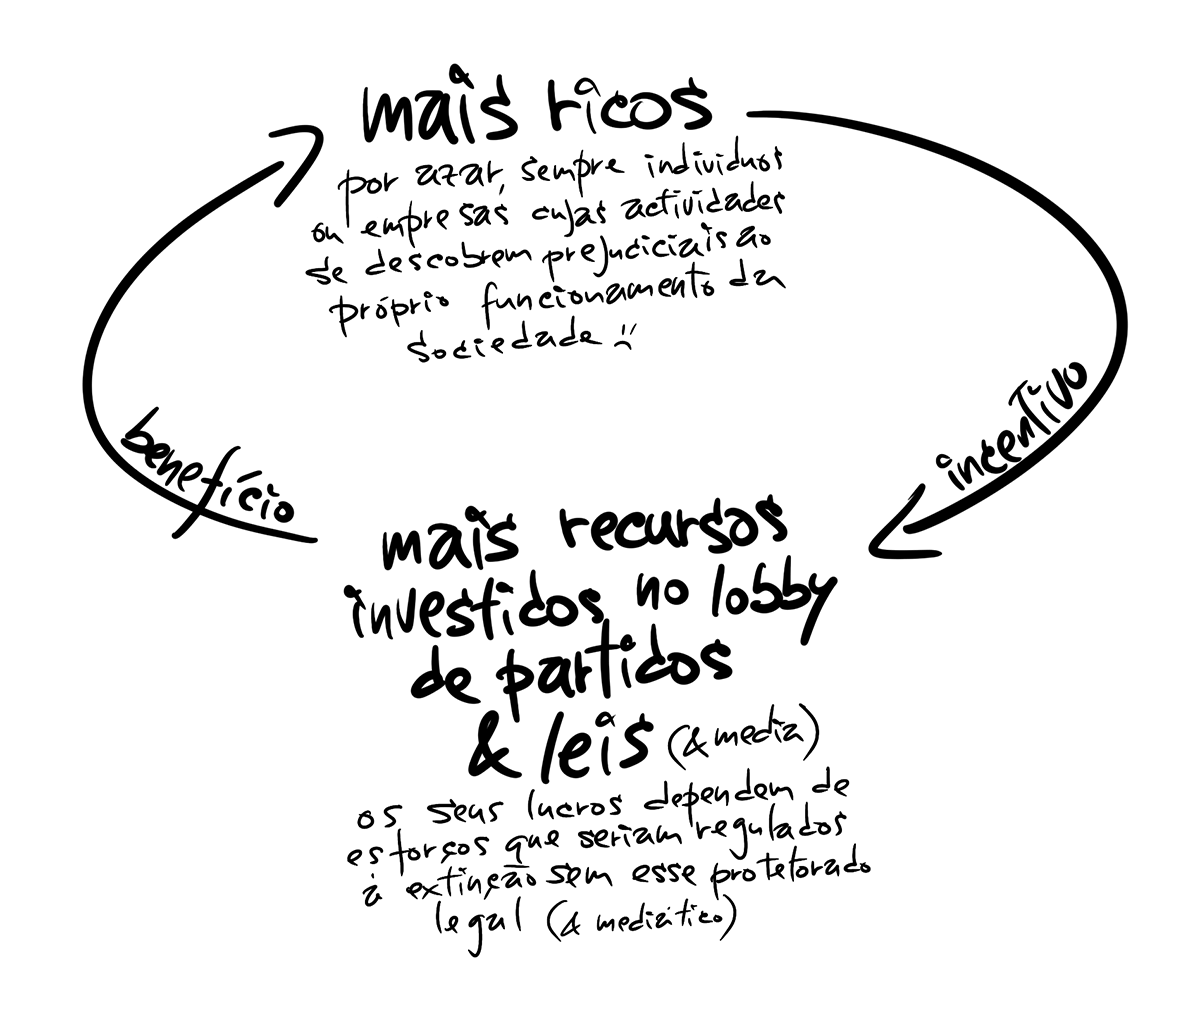 mais ricos
por azar, sempre individuos
ou empresas cujas actividades
se descobrem prejudiciais ao
próprio funcionamento da
sociedade :(
benefício
incentivo
mais recursos
investidos no lobby
de partidos
& leis (& media)
os seus lucros dependem de
esforços que seriam regulados
à extinção sem esse protetorado
legal (& mediático)